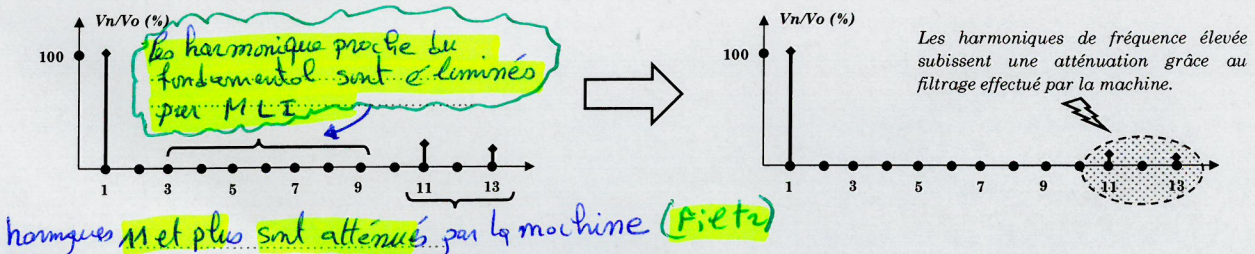 Vn/Vo (%)
100
Les harmonique proche du
fondamental sont éliminés
par MLI
1 3 5 7 9 11 13
harmoniques 11 et plus sont atténués par la machine (Filtr)
Vn/Vo (%)
100
Les harmoniques de fréquence élevée
subissent une atténuation grâce au
filtrage effectué par la machine.
1 3 5 7 9 11 13